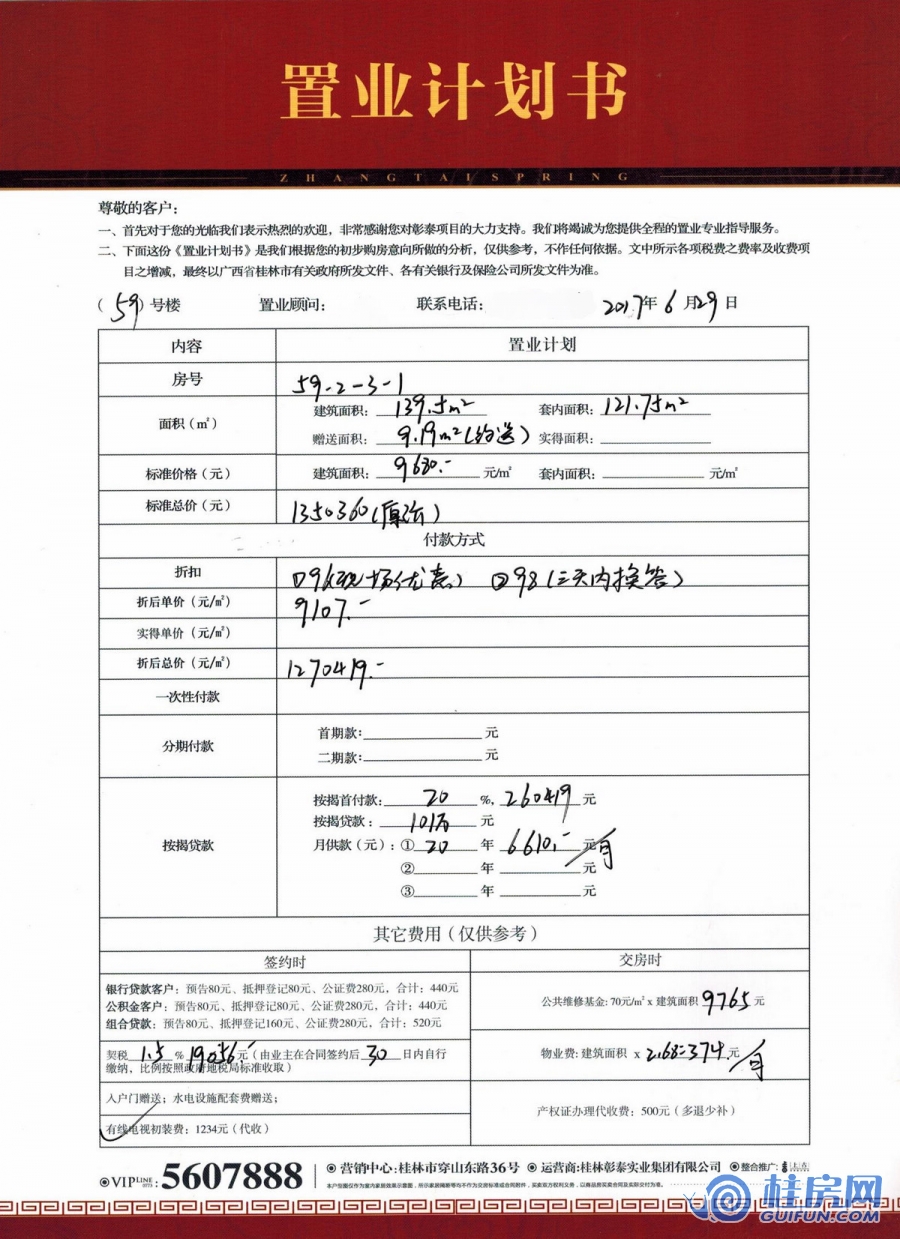 置业计划书
ZHANGTAISPRING
尊敬的客户：
一、首先对于您的光临我们表示热烈的欢迎，非常感谢您对彰泰项目的大力支持。我们将竭诚为您提供全程的置业专业指导服务。
二、下面这份《置业计划书》是我们根据您的初步购房意向所做的分析，仅供参考，不作任何依据。文中所示各项税费之费率及收费项
目之增减，最终以广西省桂林市有关政府所发文件、各有关银行及保险公司所发文件为准。
（59）号楼 置业顾问： 联系电话： 2017年6月29日
内容 置业计划
房号 59-2-3-1
面积（㎡） 建筑面积：139.5m² 套内面积：121.75m²
赠送面积：9.19m²（约送） 实得面积：
标准价格（元） 建筑面积：9680.- 元/㎡ 套内面积： 元/㎡
标准总价（元） 1350360（原价）
付款方式
折扣 ①96（现场优惠） ②98（三天内换签）
折后单价（元/㎡） 9107.-
实得单价（元/㎡）
折后总价（元/㎡） 1270419.-
一次性付款
分期付款 首期款： 元
二期款： 元
按揭贷款 按揭首付款：20%，260419元
按揭贷款：101万元
月供款（元）：①20年 6610.-元/月
② 年 元
③ 年 元
其它费用（仅供参考）
签约时 交房时
银行贷款客户：预告80元、抵押登记80元、公证费280元，合计：440元
公积金客户：预告80元、抵押登记80元、公证费280元，合计：440元
组合贷款：预告80元、抵押登记160元、公证费280元，合计：520元
公共维修基金：70元/㎡ x 建筑面积 9765元
契税1.5%19056.-元（由业主在合同签约后30日内自行
缴纳，比例按照政府地税局标准收取）
物业费：建筑面积 x 2.68=374元/月
入户门赠送；水电设施配套费赠送；
有线电视初装费：1234元（代收）
产权证办理代收费：500元（多退少补）
VIP LINE 0773：5607888
营销中心：桂林市穿山东路36号 运营商：桂林彰泰实业集团有限公司 整合推广：
桂房网
GUIFUN.COM